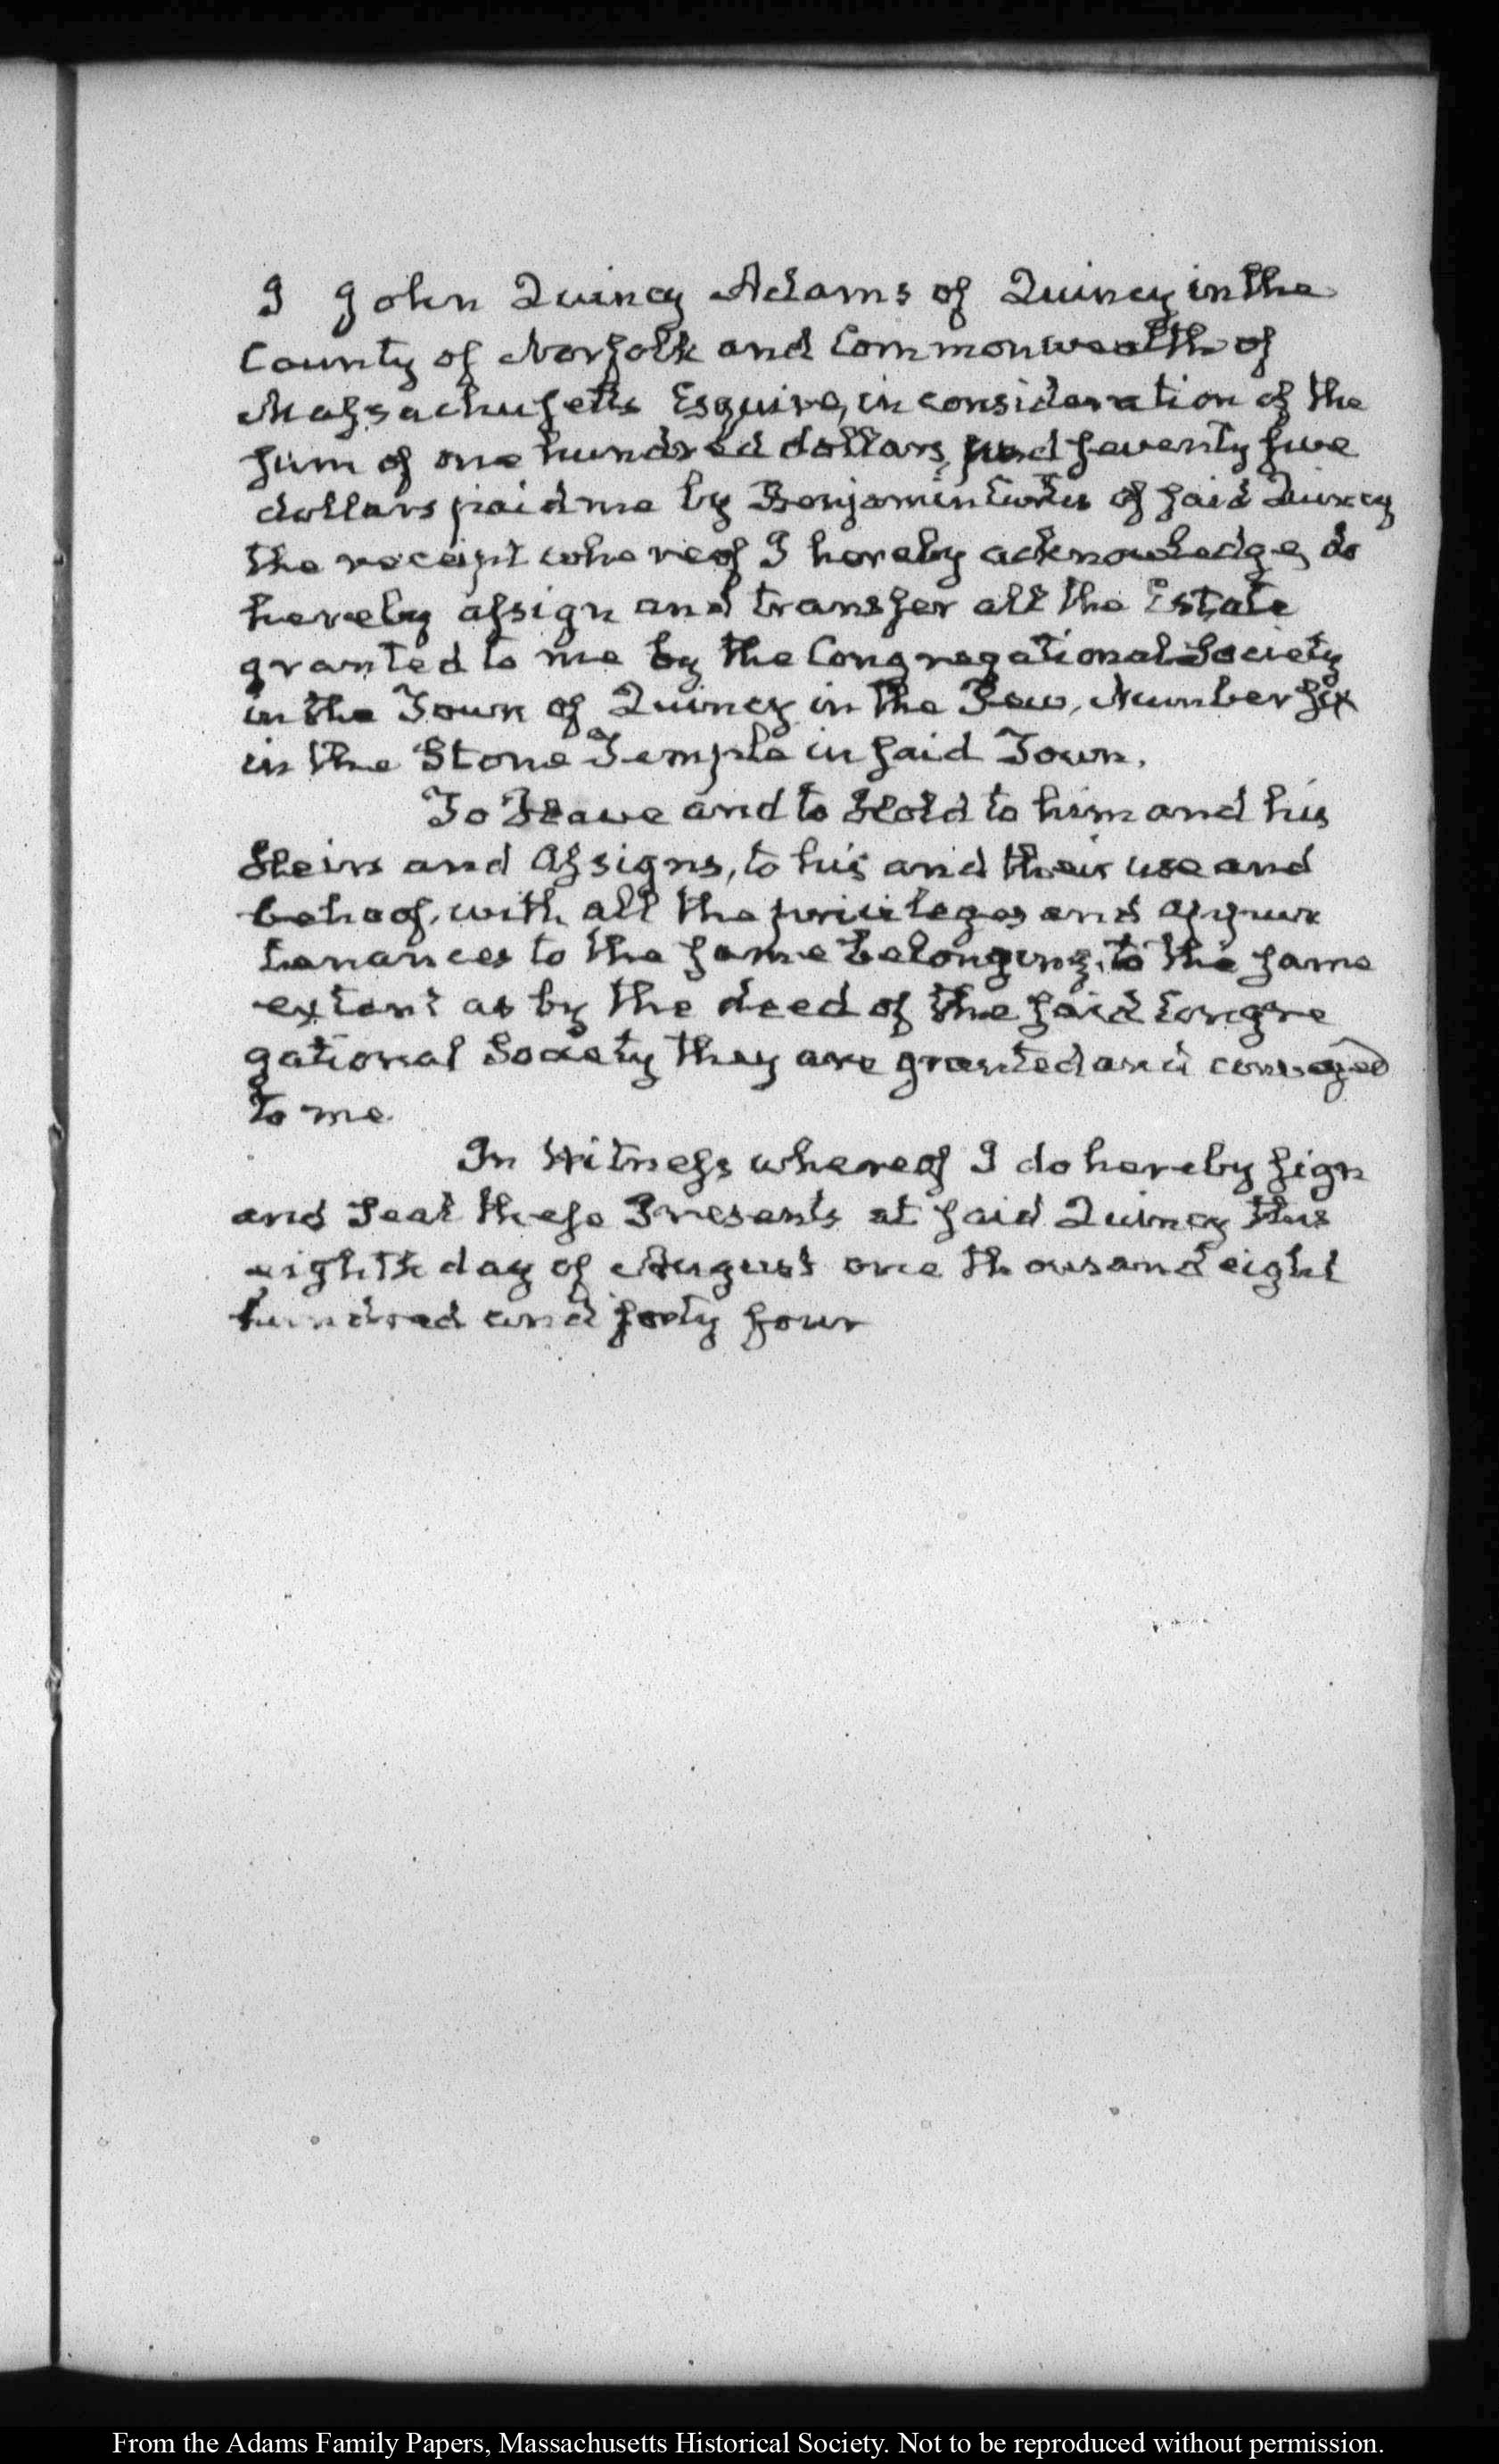 I John Quincy Adams of Quincy in the
County of Norfolk and Commonwealth of
Massachusetts Esquire, in consideration of the
sum of one hundred dollars, and seventy five
dollars paid me by Benjamin Curtis of said Quincy
the receipt whereof I hereby acknowledge, do
hereby assign and transfer all the Estate
granted to me by the Congregational Society
in the Town of Quincy in the Pew, Number six
in the Stone Temple in said Town.
To Have and to Hold to him and his
Heirs and Assigns, to his and their use and
behoof, with all the privileges and appur
tenances to the same belonging, to the same
extent as by the deed of the said Congre
gational Society they are granted and conveyed
to me.
In Witness whereof I do hereby sign
and seal these Presents at said Quincy this
eighth day of August one thousand eight
hundred and forty four
From the Adams Family Papers, Massachusetts Historical Society. Not to be reproduced without permission.